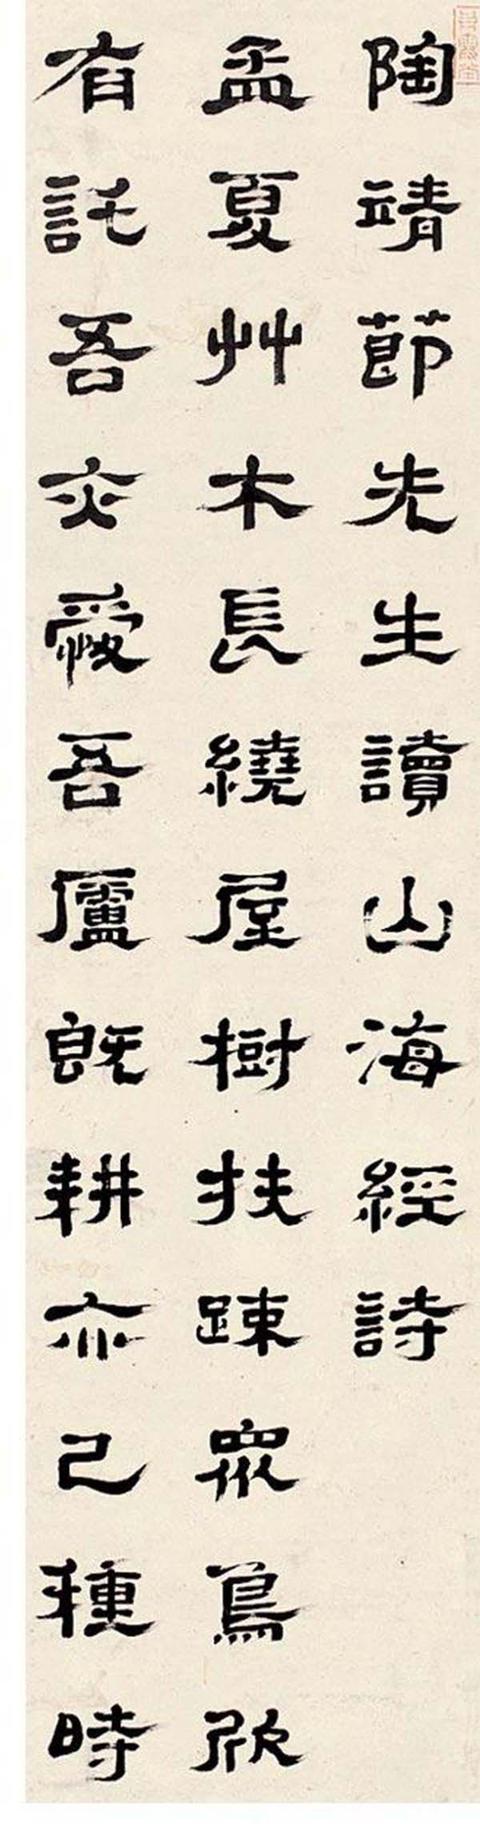 陶靖節先生讀山海經詩
孟夏艸木長繞屋樹扶踈眾鳥欣
有託吾亦愛吾廬既耕亦已種時